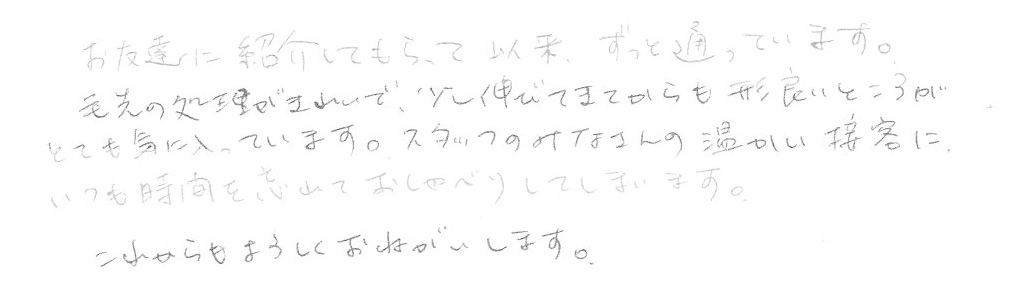 お友達に紹介してもらって以来、ずっと通っています。
毛先の処理がきれいで、少し伸びてきてからも形良いところが
とても気に入っています。スタッフのみなさんの温かい接客に、
いつも時間を忘れておしゃべりしてしまいます。
これからもよろしくおねがいします。